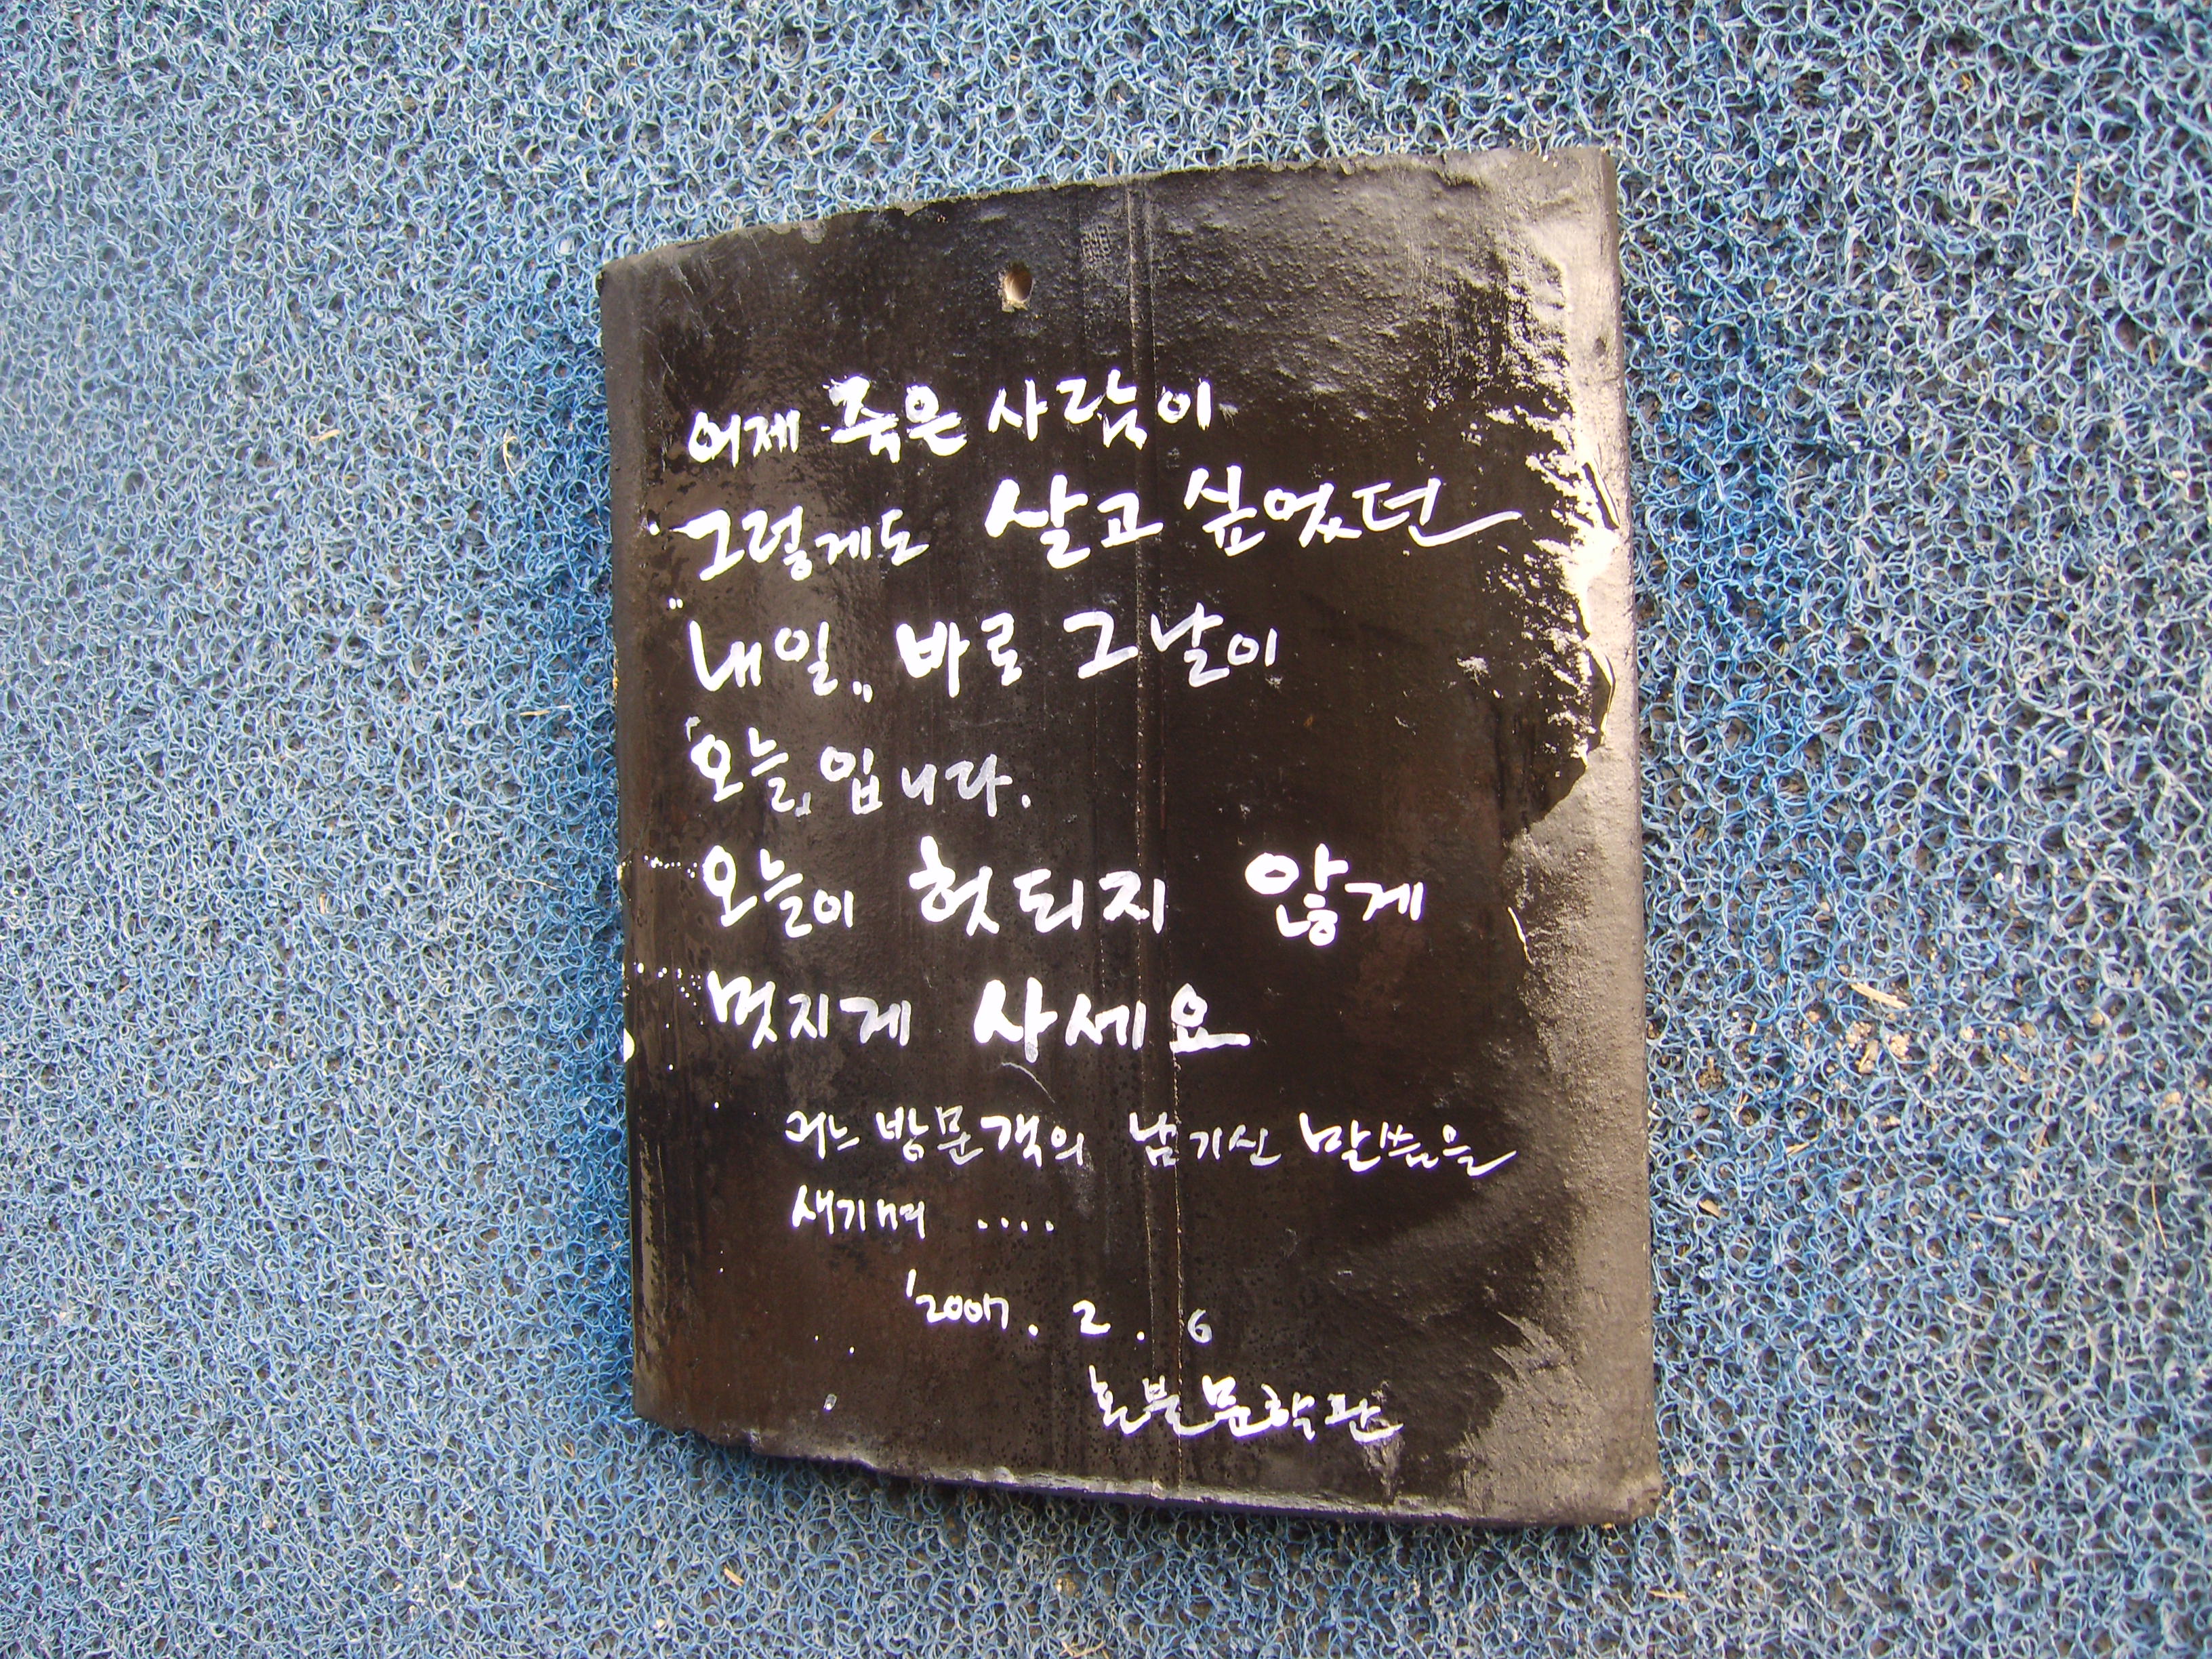 어제 죽은 사람이
그렇게도 살고 싶었던
"내일" 바로 그날이
"오늘"입니다.
오늘이 헛되지 않게
멋지게 사세요
어느 방문객의 남기신 말씀을
새기며 ....
'2007. 2. 6
혼불문학관